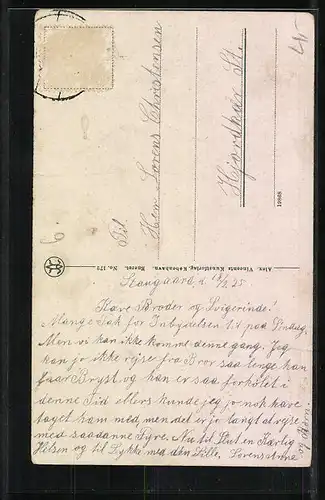 Til
Herr Lorens Christensen
Hjordkær St.
Alex. Vincents Kunstforlag, København. Eneret. No. 170
12868
Skovgaard d. 18/2 25
Kære Broder og Svigerinde!
Mange Tak for Inbydelsen til paa Lördag.
Men vi kan ikke komme denne gang. Jeg
kan jo ikke rejse fra Bror saa lenge kan
faar Bryst og han er saa forkølet i
denne Tid ellers kunde jeg jo nok have
taget ham med, men det er jo langt at rejse
med saadanne Fyre. Nu til Slut en Kærlig
Hilsen og til Lykke med den Lille. Lorens Anne
og Børn.